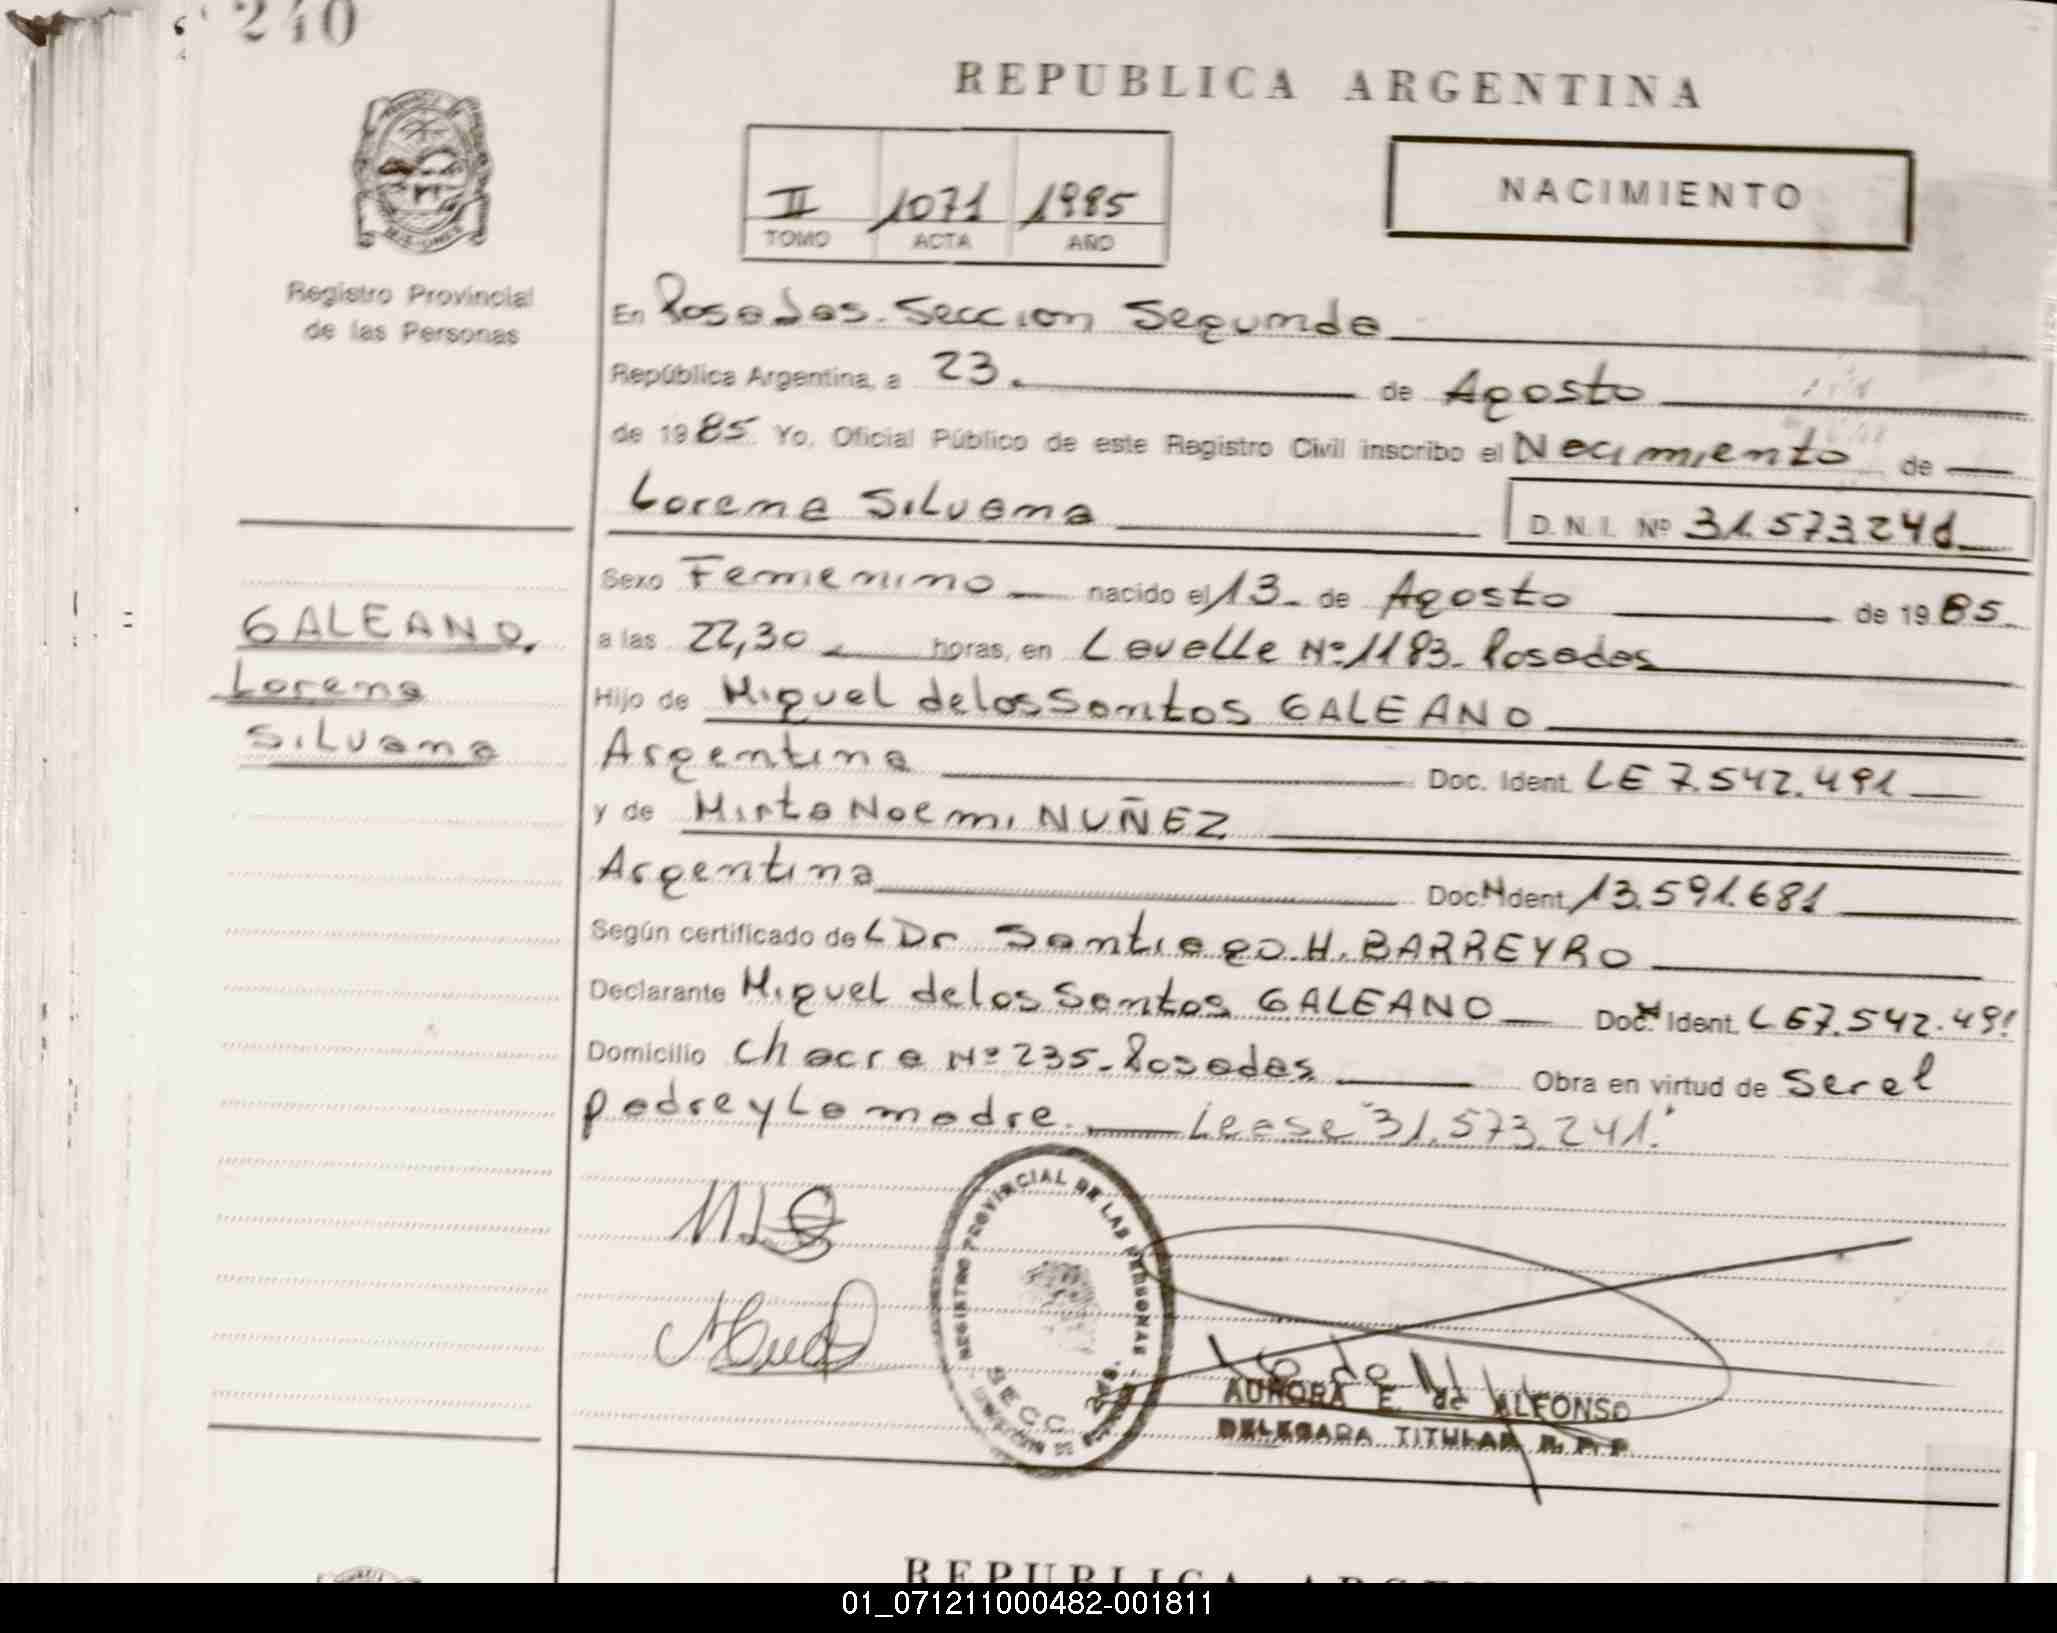 240
REPUBLICA ARGENTINA
II 1071 1985
TOMO ACTA AÑO
NACIMIENTO
MISIONES
Registro Provincial
de las Personas
En Posadas. Seccion Segunda
República Argentina, a 23. de Agosto
de 1985 Yo, Oficial Público de este Registro Civil inscribo el Nacimiento de
Lorena Silvana D.N.I. Nº 31.573.241
Sexo Femenino nacido el 13 de Agosto de 1985
a las 22,30 horas, en Lavalle Nº 1183. Posadas
Hijo de Miguel de los Santos GALEANO
Argentina Doc. Ident. LE 7.542.491
y de Mirta Noemi NUÑEZ
Argentina Doc. N Ident. 13.591.681
Según certificado de L Dr Santiago. H. BARREYRO
Declarante Miguel de los Santos GALEANO Doc. Ident. LE 7.542.491
Domicilio Chacra Nº 235. Posadas Obra en virtud de Ser el
padre y la madre. Lease "31.573.241."
GALEANO,
Lorena
Silvana
REGISTRO PROVINCIAL DE LAS PERSONAS
SECC. 2da.
AURORA E. de ALFONSO
DELEGADA TITULAR R. P. P.
REPUBLICA
01_071211000482-001811